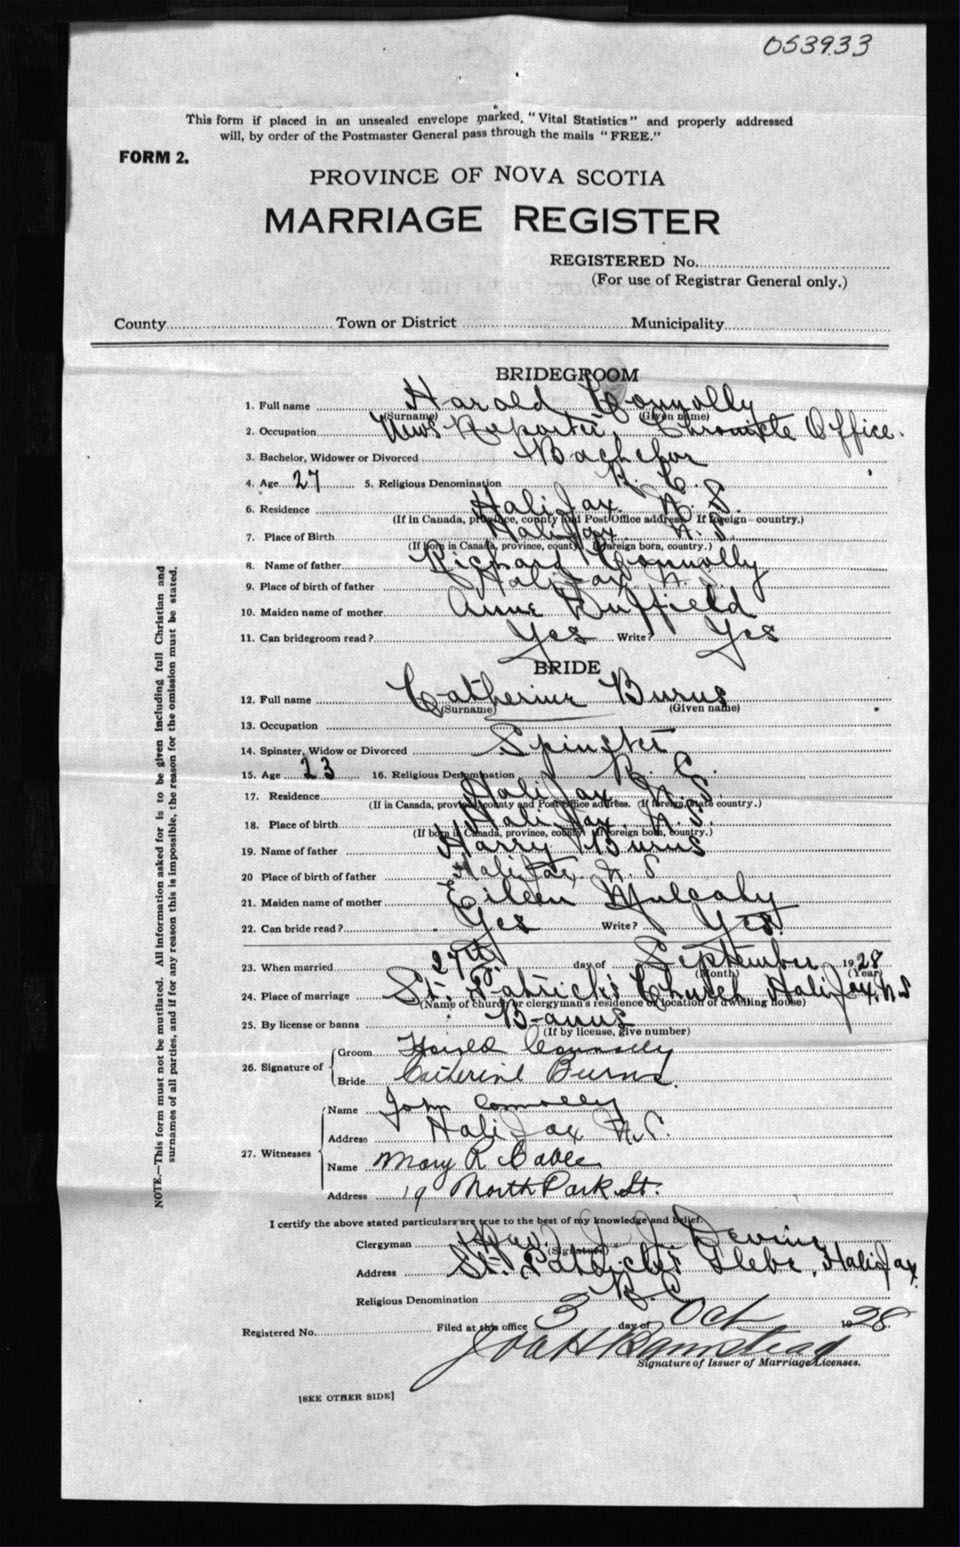 053933
This form if placed in an unsealed envelope marked, "Vital Statistics" and properly addressed
will, by order of the Postmaster General pass through the mails "FREE."
FORM 2.
PROVINCE OF NOVA SCOTIA
MARRIAGE REGISTER
REGISTERED No.
(For use of Registrar General only.)
County Town or District Municipality
BRIDEGROOM
1. Full name Harold Connolly
(Surname) (Given name)
2. Occupation News Reporter, Chronicle Office.
3. Bachelor, Widower or Divorced Bachelor
4. Age 27 5. Religious Denomination R. C.
6. Residence Halifax N. S.
(If in Canada, province, county and Post Office address. If foreign country.)
7. Place of Birth Halifax N. S.
(If born in Canada, province, county. If foreign born, country.)
8. Name of father Richard Connolly
9. Place of birth of father Halifax N. S.
10. Maiden name of mother Anne Duffield
11. Can bridegroom read? Yes Write? Yes
BRIDE
12. Full name Catherine Burns
(Surname) (Given name)
13. Occupation
14. Spinster, Widow or Divorced Spinster
15. Age 23 16. Religious Denomination R. C.
17. Residence Halifax N. S.
(If in Canada, province, county and Post Office address. If foreign, state country.)
18. Place of birth Halifax. N. S.
(If born in Canada, province, county. If foreign born, country.)
19. Name of father Harry Burns
20 Place of birth of father Halifax N. S
21. Maiden name of mother Eileen Mulcahy
22. Can bride read? Yes Write? Yes.
23. When married 27th day of September 1928
(Month) (Year)
24. Place of marriage St. Patrick's Church Halifax, N S
(Name of church or clergyman's residence or location of dwelling house)
25. By license or banns Banns
(If by license, give number)
26. Signature of
Groom Harold Connolly
Bride Catherine Burns.
27. Witnesses
Name John Connolly
Address Halifax N.S.
Name Mary R Cable
Address 19 North Park St.
I certify the above stated particulars are true to the best of my knowledge and belief.
Clergyman Devine
(Signature)
Address St. Patrick's Glebe, Halifax
Religious Denomination R. C
Registered No. Filed at this office 3 day of Oct 1928
Signature of Issuer of Marriage Licenses.
[SEE OTHER SIDE]
NOTE.—This form must not be mutilated. All information asked for is to be given including full Christian and
surnames of all parties, and if for any reason this is impossible, the reason for the omission must be stated.